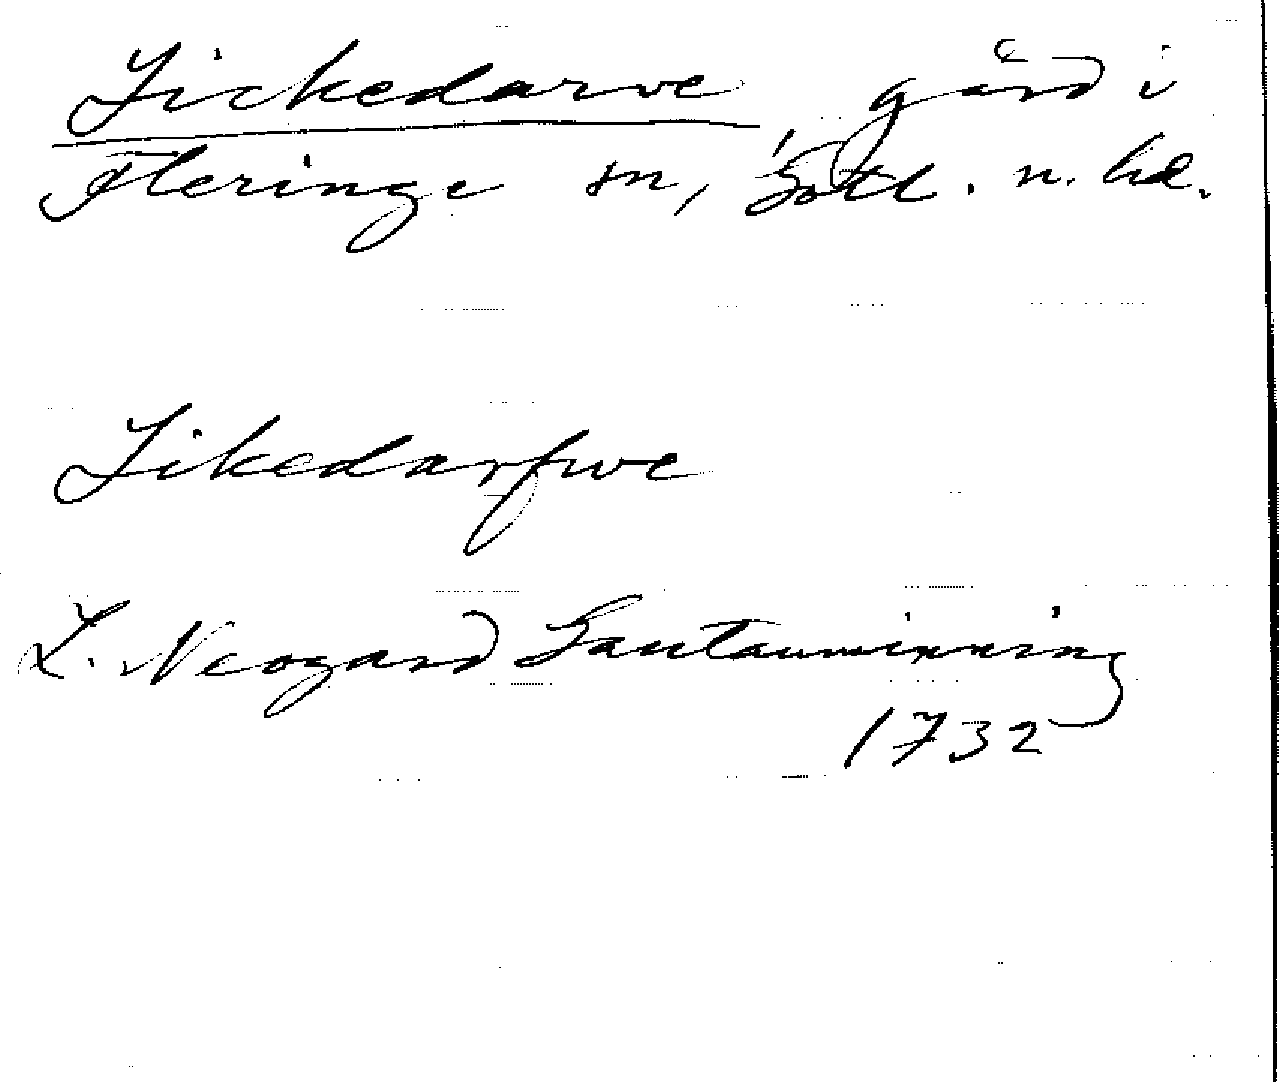 Lickedarve gård i
Fleringe sn, Gotl. n. hd.
Likedarfwe
L. Neogard Gautauminning
1732